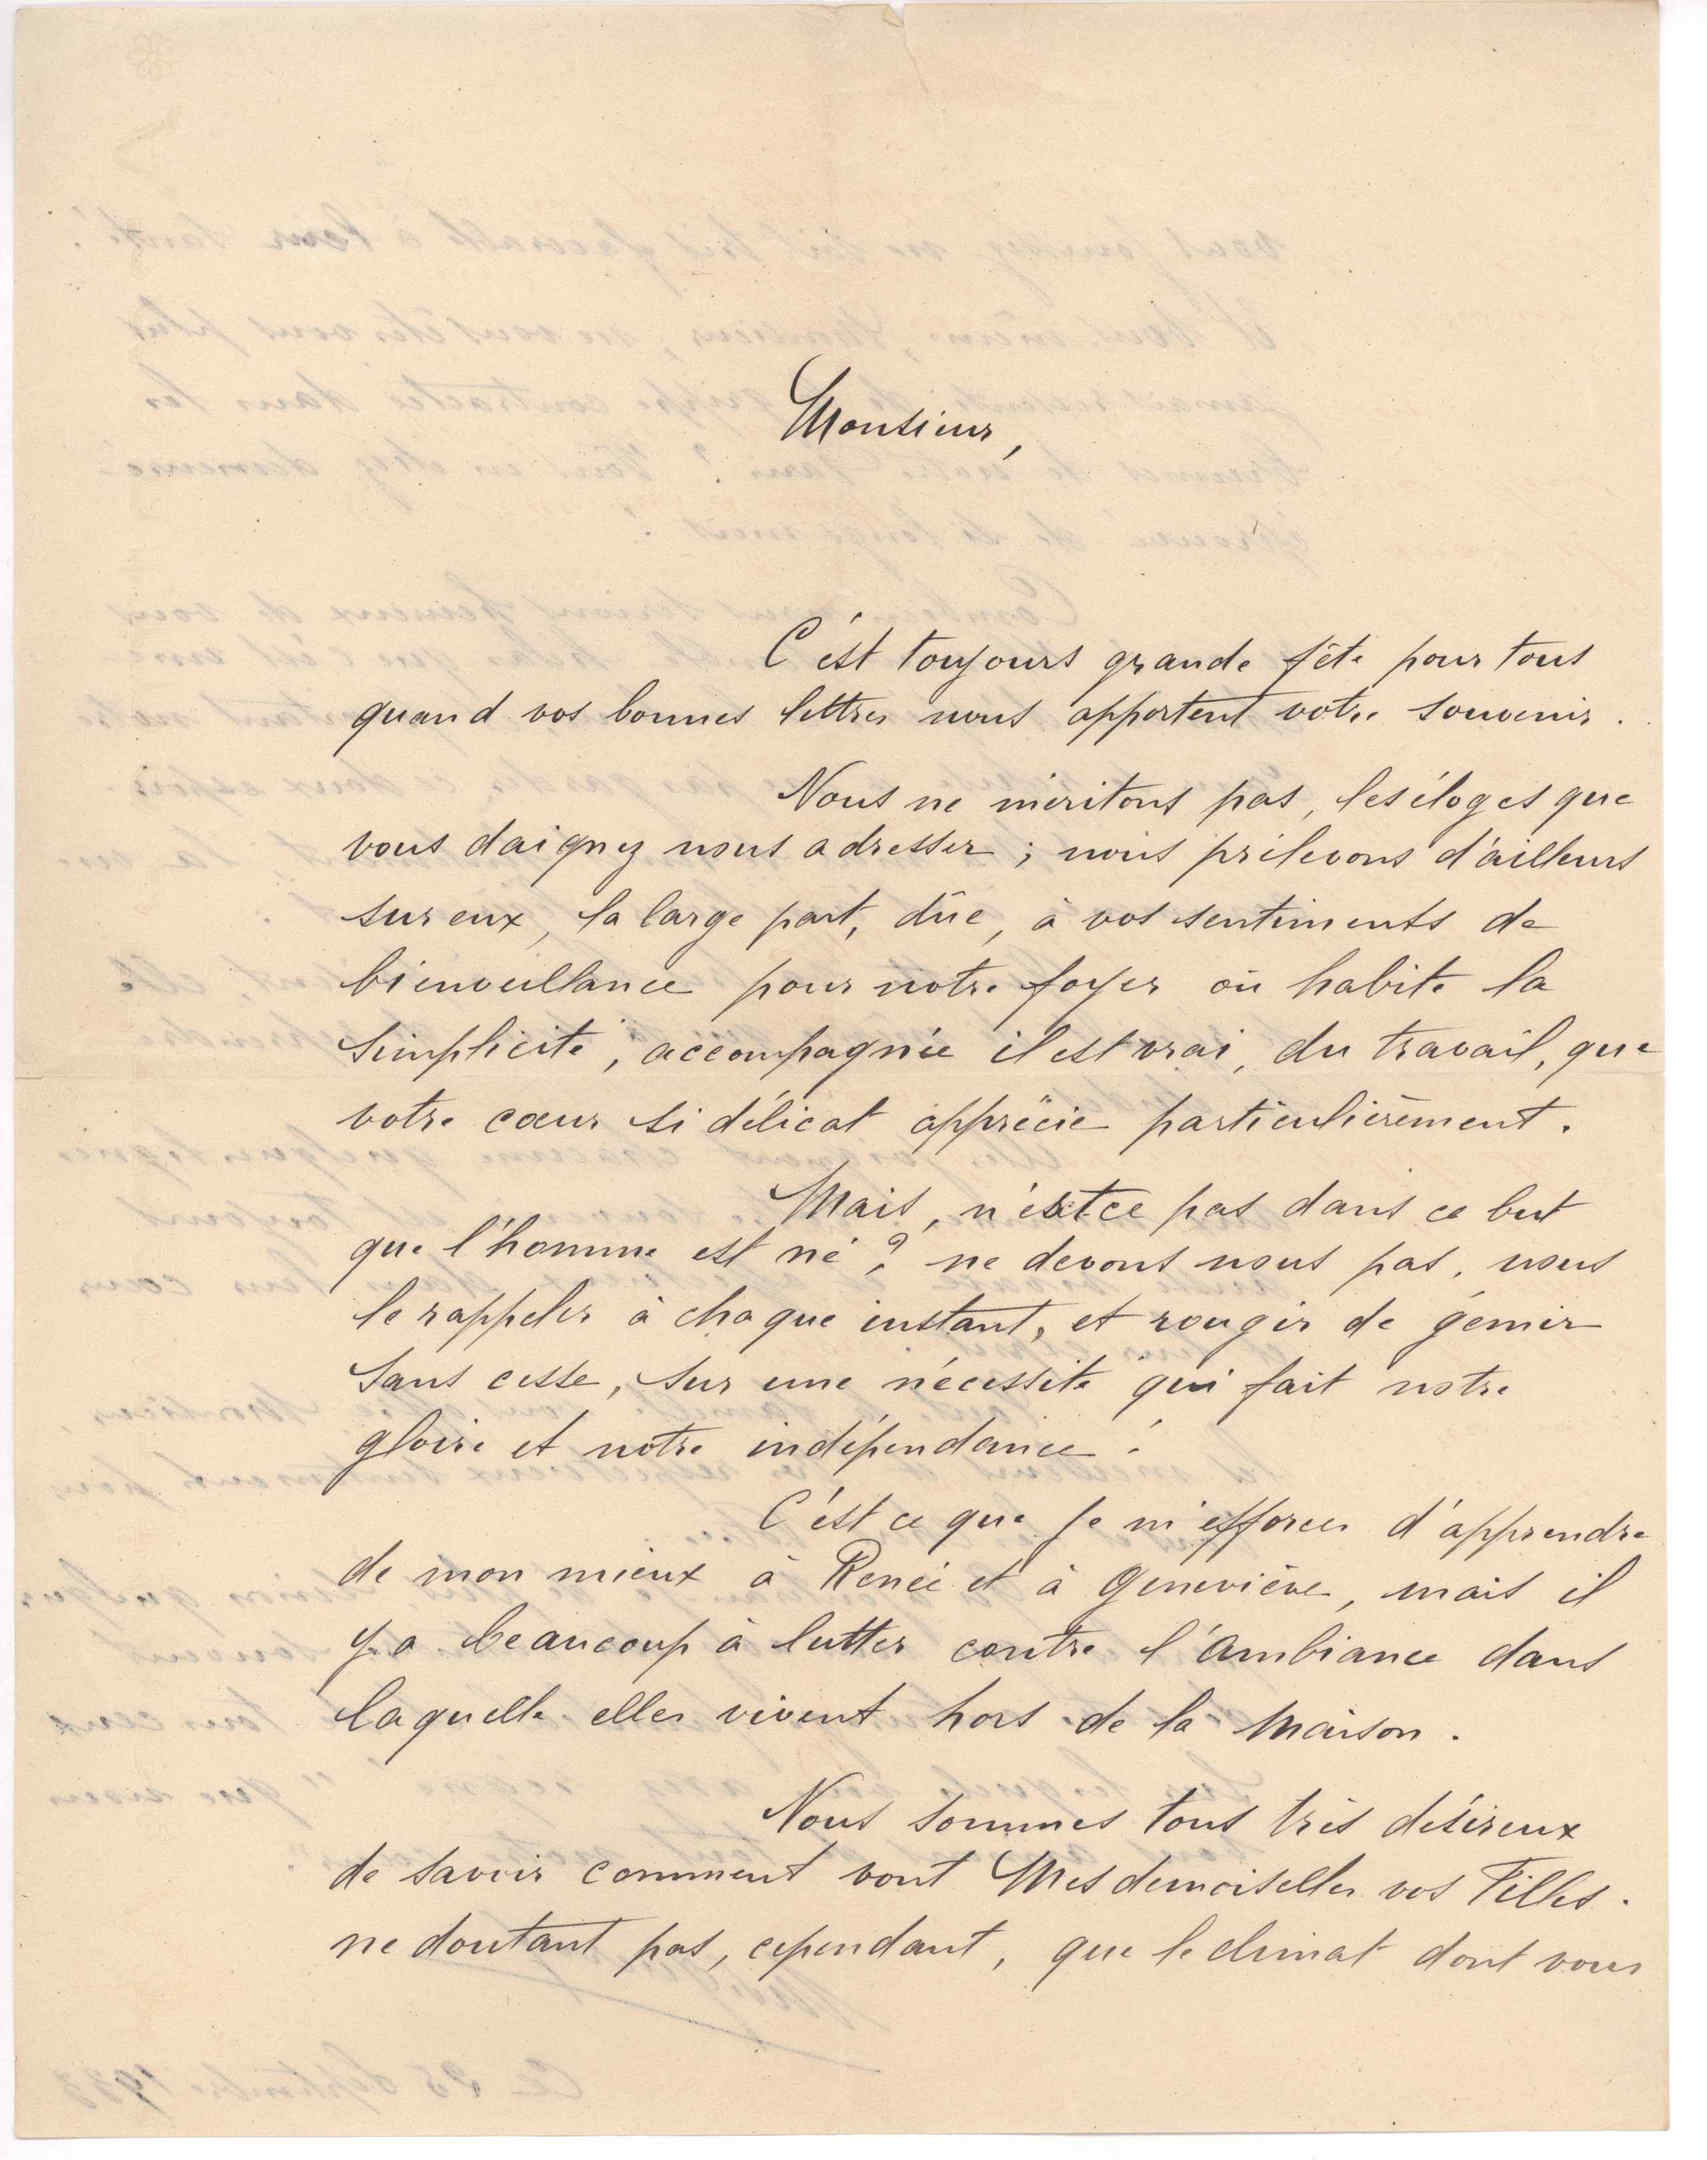 Monsieur,
C'est toujours grande fête pour tous
quand vos bonnes lettres nous apportent votre souvenir.
Nous ne méritons pas, les éloges que
vous daignez nous adresser ; nous prélevons d'ailleurs
sur eux, la large part, dûe, à vos sentiments de
bienveillance pour notre foyer où habite la
simplicité, accompagnée il est vrai, du travail, que
votre cœur si délicat apprécie particulièrement.
Mais, n'est-ce pas dans ce but
que l'homme est né ? ne devons nous pas, nous
le rappeler à chaque instant, et rougir de gémir
sans cesse, sur une nécessité qui fait notre
gloire et notre indépendance !
C'est ce que je m'efforce d'apprendre
de mon mieux à Renée et à Geneviève, mais il
y a beaucoup à lutter contre l'ambiance dans
laquelle elles vivent hors de la maison.
Nous sommes tous très désireux
de savoir comment vont Mesdemoiselles vos Filles.
ne doutant pas, cependant, que le climat dont vous